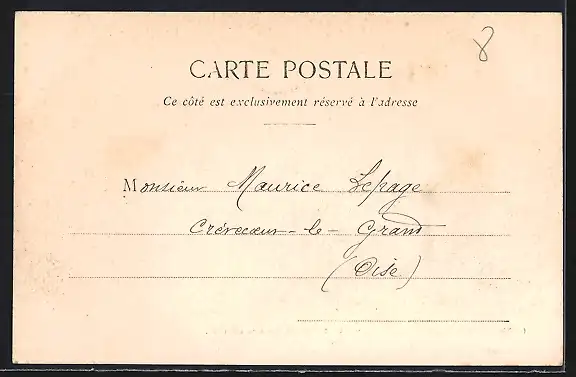 8
CARTE POSTALE
Ce côté est exclusivement réservé à l'adresse
Monsieur Maurice Lepage
Crévecœur-le-Grand
(Oise)